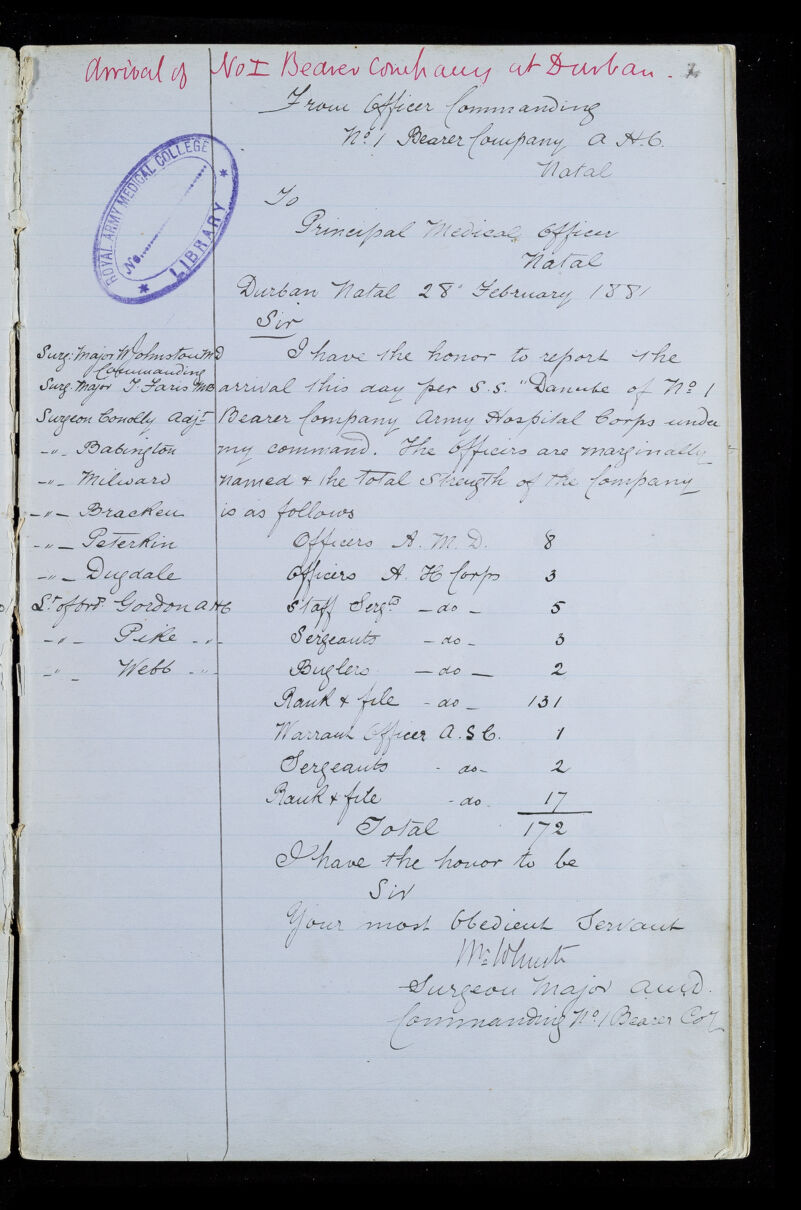 Arrival of No I Bearer Company at Durban.
From Officer Commanding
No. 1 Bearer Company A.H.C.
Natal
ROYAL ARMY MEDICAL COLLEGE
No.
* LIBRARY *
To
Principal Medical Officer
Natal
Durban Natal 28" February 1881
Sir
I have the honor to report the
arrival this day per S.S. "Danube of No 1
Bearer Company Army Hospital Corps under
my command. The Officers are marginally
named & the total Strength of the Company
is as follows
Surg: Major W Johnston MD
Commanding
Surg. Major T. Faris MB
Surgeon Conolly Adjt
-"- Babington
-"- Milward
-"- Bracken
-"- Peterkin
-"- Dugdale
Lt of Ords Gordon AHC
-"- Pike -"-
-"- Webb -"-
Officers A. M. D. 8
Officers A. H Corps 3
Staff Sergts -do- 5
Sergeants -do- 3
Buglers -do- 2
Rank & file -do- 131
Warrant Officer A.S.C. 1
Sergeants -do- 2
Rank & file -do. 17
Total 172
I have the honor to be
Sir
Your most Obedient Servant
Surgeon Major AMD.
Commanding No 1 Bearer Coy